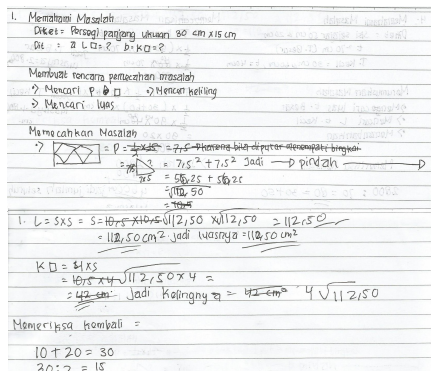 1. Memahami Masalah
Diket = Persegi panjang ukuran 30 cm x 15 cm
Dit : a L □ = ? b. K □ = ?
Membuat rencana pemecahan masalah
•> Mencari p. □ •> Mencari keliling
•> Mencari luas
Memecahkan Masalah
•> = P = 1/2 x 15 = 7,5 → karena bila diputar menempati bingkai
7,5 7,5 = 7,5² + 7,5² Jadi → pindah →
= 56,25 + 56,25
= √112,50
= 10,5
1. L = S x S = S = 10,5 x 10,5 √112,50 x √112,50 = 112,50
= 112,50 cm² jadi luasnya = 112,50 cm²
K □ = 4 x s
= 10,5 x 4 √112,50 x 4 =
= 42 cm Jadi Kelingnya = 42 cm 4 √112,50
Memeriksa kembali =
10 + 20 = 30
30 : 2 = 15